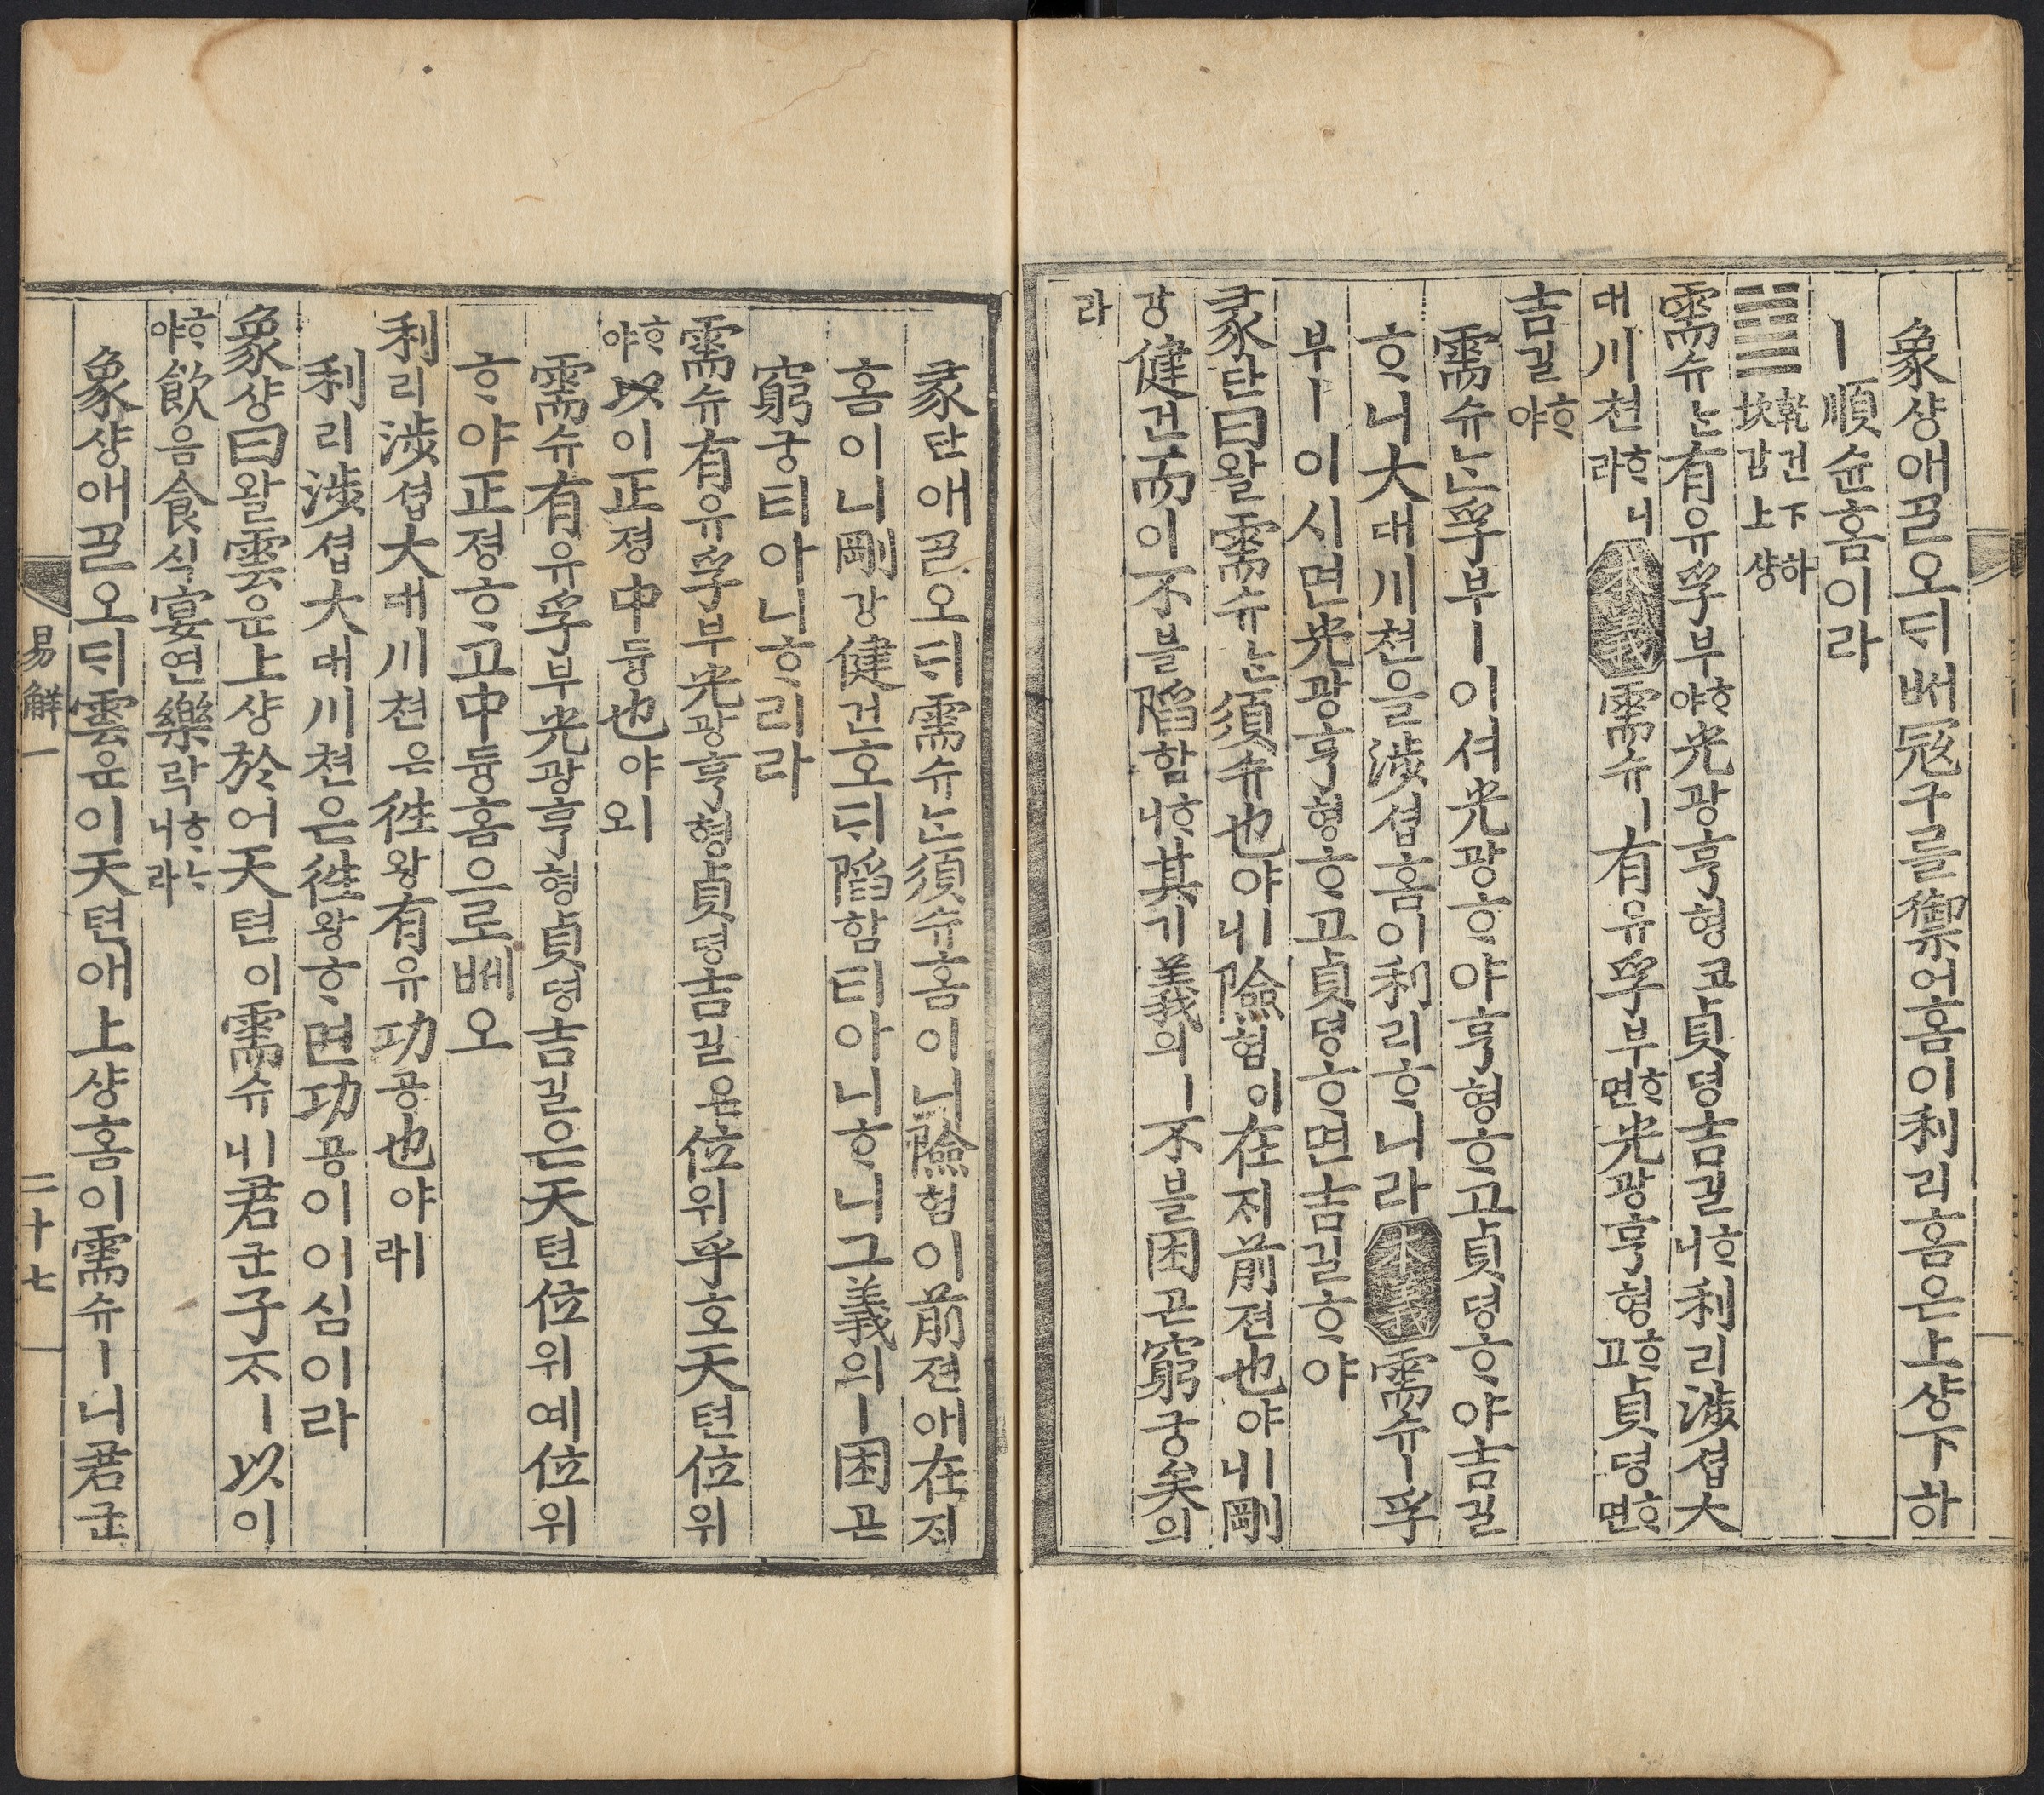 象샹애ᄀᆞᆯ오ᄃᆡᄡᅥ冦구를禦어홈이利리홈은上샹下하
ㅣ順슌홈이라
䷄ 乾건下하 坎감上샹
需슈ᄂᆞᆫ有유孚부ᄒᆞ야光광亨형코貞뎡吉길ᄒᆞ니利리涉셥大
대川쳔ᄒᆞ니라 本義 需슈ㅣ有유孚부ᄒᆞ면光광亨형ᄒᆞ고貞뎡ᄒᆞ면
吉길ᄒᆞ야
需슈ᄂᆞᆫ孚부ㅣ이셔光광ᄒᆞ야亨형ᄒᆞ고貞뎡ᄒᆞ야吉길
ᄒᆞ니大대川쳔을涉셥홈이利리ᄒᆞ니라 本義 需슈ㅣ孚
부ㅣ이시면光광亨형ᄒᆞ고貞뎡ᄒᆞ면吉길ᄒᆞ야
彖단曰왈需슈ᄂᆞᆫ須슈也야ㅣ니險험이在ᄌᆡ前젼也야ㅣ니剛
강健건而이不블陷함ᄒᆞ니其기義의ㅣ不블困곤窮궁矣의
라
彖단애ᄀᆞᆯ오ᄃᆡ需슈ᄂᆞᆫ須슈홈이니險험이前젼애在ᄌᆡ
홈이니剛강健건호ᄃᆡ陷함티아니ᄒᆞ니그義의ㅣ困곤
窮궁티아니ᄒᆞ리라
需슈有유孚부光광亨형貞뎡吉길은位위乎호天텬位위
ᄒᆞ야以이正졍中듕也야ㅣ오
需슈有유孚부光광亨형貞뎡吉길은天텬位위예位위
ᄒᆞ야正졍ᄒᆞ고中듕홈으로ᄡᅦ오
利리涉셥大대川쳔은徃왕有유功공也야ㅣ라
利리涉셥大대川쳔은徃왕ᄒᆞ면功공이이심이라
象샹曰왈雲운上샹於어天텬이需슈ㅣ니君군子ᄌᆞㅣ以이
ᄒᆞ야飮음食식宴연樂락ᄒᆞᄂᆞ니라
象샹애ᄀᆞᆯ오ᄃᆡ雲운이天텬애上샹홈이需슈ㅣ니君군
易解一 二十七